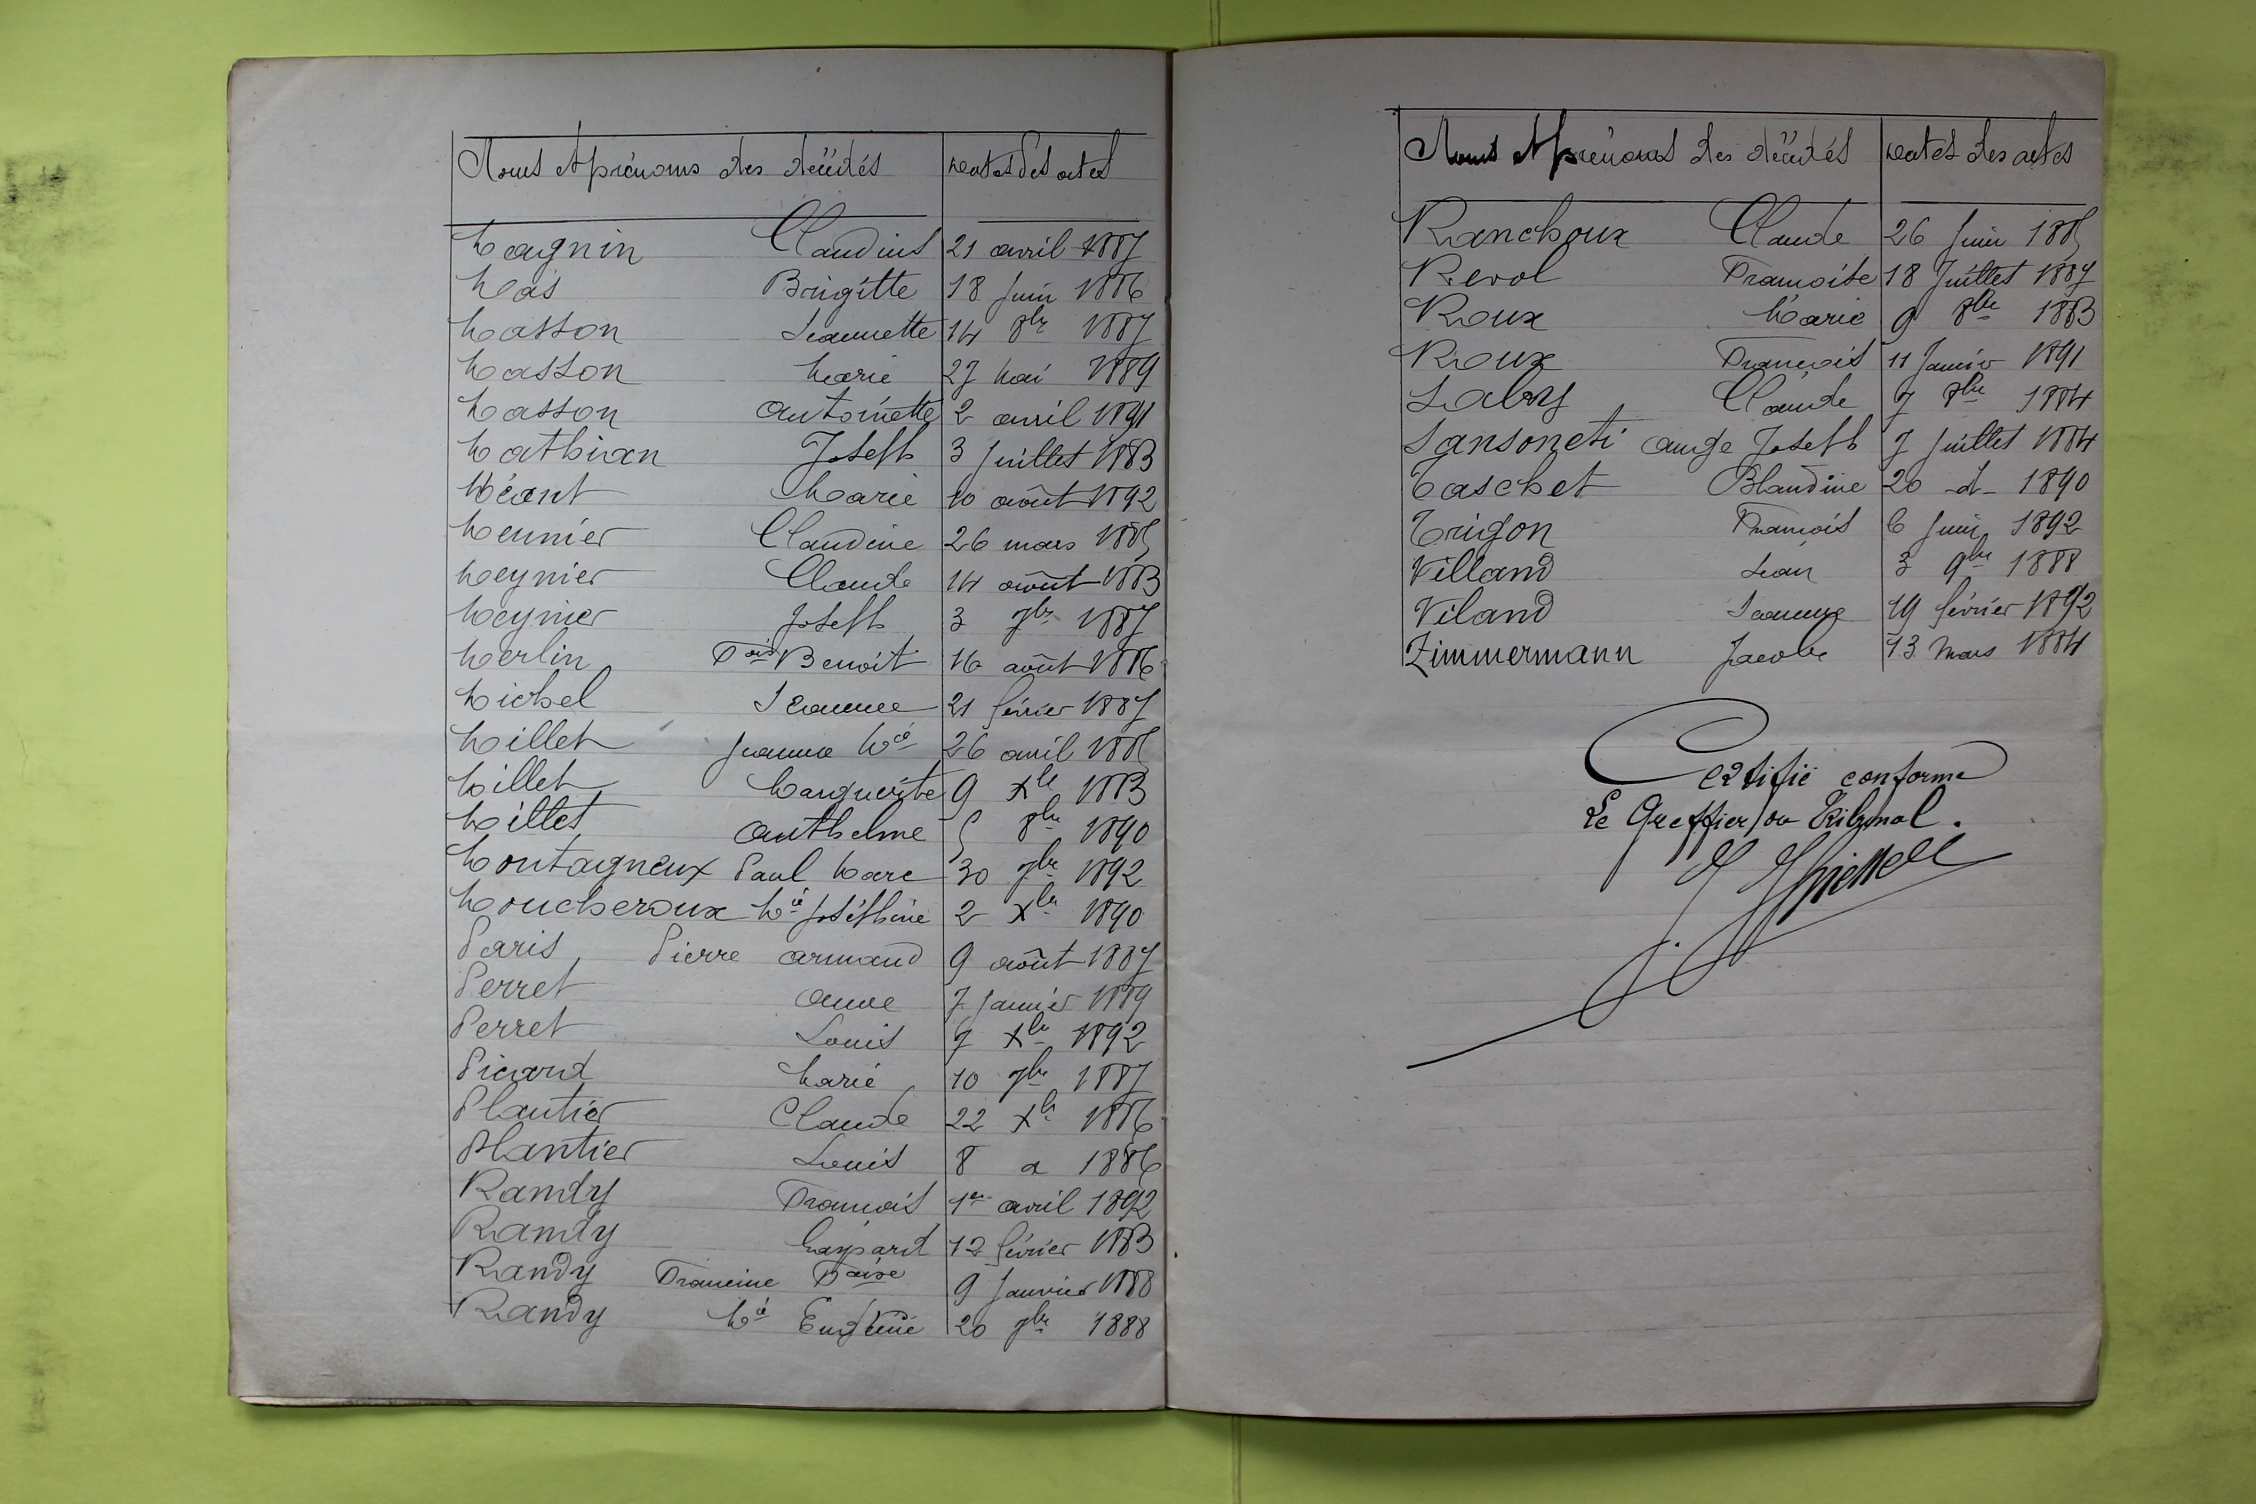 Noms et prénoms des décédés Dates des actes
Magnin Claudius 21 avril 1887
Mas Brigitte 18 Juin 1886
Masson Jeannette 14 8bre 1887
Masson Marie 27 Mai 1889
Masson Antoinette 2 avril 1891
Mathian Joseph 3 Juillet 1883
Méant Marie 10 août 1892
Meunier Claudine 26 mars 1885
Meynier Claude 14 août 1883
Meynier Joseph 3 7bre 1887
Merlin Fois Benoit 16 août 1886
Michel Jeanne 21 février 1887
Millet Jeanne Mie 26 avril 1885
Millet Marguerite 9 Xbre 1883
Millet Anthelme 5 8bre 1890
Montagneux Paul Marc 30 7bre 1892
Moucheroux Mie Joséphine 2 Xbre 1890
Paris Pierre Armand 9 août 1887
Perret Anne 7 Janvier 1889
Perret Louis 7 Xbre 1892
Picard Marie 10 7bre 1887
Plantier Claude 22 Xbre 1886
Plantier Louis 8 d 1886
Randy François 1er avril 1892
Randy Gaspard 12 février 1883
Randy Francine Fçoise 9 Janvier 1888
Randy Mie Eugénie 20 7bre 1888
Noms et prénoms des décédés Dates des actes
Ranchoux Claude 26 Juin 1885
Revol Françoise 18 Juillet 1887
Roux Marie 9 8bre 1883
Roux François 11 Janvier 1891
Labry Claude 7 8bre 1884
Sansoneti ange Joseph 7 Juillet 1884
Taschet Blandine 20 -d- 1890
Trigon François 6 Juin 1892
Villand Jean 3 9bre 1888
Viland Jeanne 19 février 1892
Zimmermann Jacob 13 Mars 1884
Certifié conforme
Le Greffier du Tribunal.